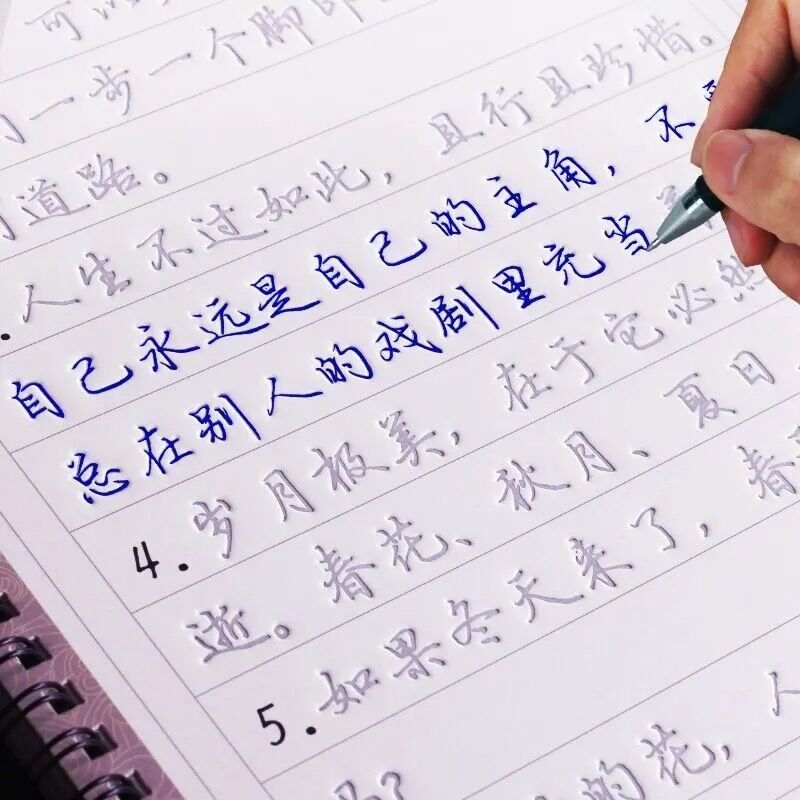 可以
一步一个脚印
道路。
.人生不过如此，且行且珍惜。
自己永远是自己的主角，不
总在别人的戏剧里充当
4.岁月极美，在于它必然
逝。春花、秋月、夏日
5.如果冬天来了，春
的花，人